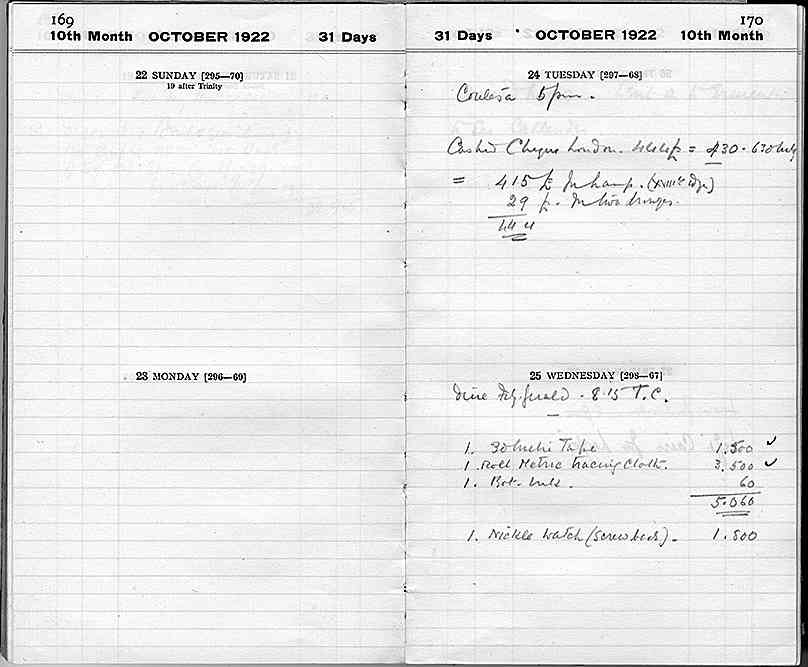 169
10th Month OCTOBER 1922 31 Days
22 SUNDAY [295—70]
19 after Trinity
23 MONDAY [296—69]
170
31 Days OCTOBER 1922 10th Month
24 TUESDAY [297—68]
5 pm.
Cashed Cheque London. = 430.
= 415 £ In hand.
29 In two
444
25 WEDNESDAY [298—67]
Dine Fitzgerald - 8.15 T.C.
1. Tape 1.500 ✓
1. Roll Metric tracing Cloth. 3.500 ✓
1. Bot. 60
5.060
1. Nickle Watch (screw back). 1.500